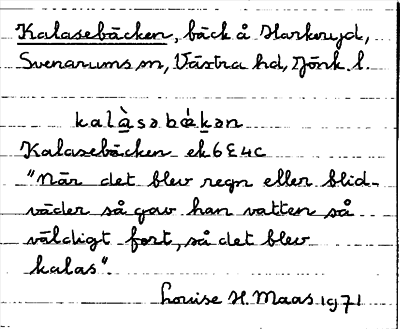 Kalasebäcken, bäck å Harkeryd,
Svenarums sn, Västra hd, Jönk. l.
kalàsəbækən
Kalasebäcken ek 6E4c
"När det blev regn eller blid-
väder så gav han vatten så
väldigt fort, så det blev
kalas".
Louise H. Maas 1971